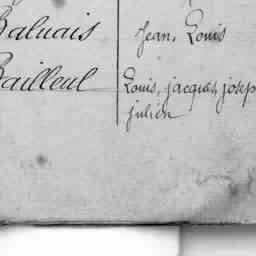 Baluais Jean, Louis
Bailleul Louis, jacques, josep
julien